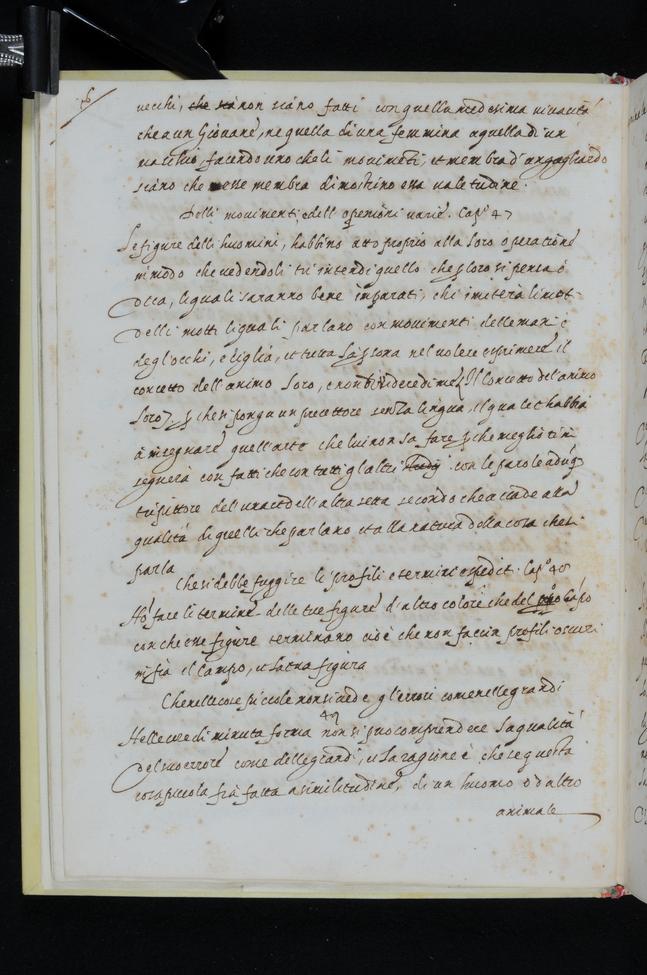 16
vecchi, che sia non siano fatti con quella medesima vivacità
che a un Giovane, ne quella di una femmina a quella di un
maschio, facendo uno che li movimenti, et membra d'un gagliardo
siano che esse membra dimostrino essa valetudine.
Delli movimenti, dell openioni varie. Cap.º 47
Le figure delli huomini, habbino atto proprio alla loro operatione
in modo che vedendoli tu intendi quello che p loro si pensa ò
dica, li quali saranno bene imparati, chi imiterà li mot
delli motti li quali parlano con movimenti delle mani è
degl'occhi, è ciglia, et tutta la psona nel volere esprimere il
concetto dell'animo loro, e non ti ridere di me Il concetto del animo
loro p che si ponga un precettore senza lingua, il quale t habbia
à insegnare quell'arte che lui non sa fare p che meglio t in
segnerà con fatti che con tutti gl'altri con le parole adūq
tu pittore del una et dell'altra setta secondo che accade alla
qualità di quelli che parlano et alla natura della cosa che si
parla
Che si debbe fuggire li profili e termini espediti. Cap.º 48
Nō fare li termine delle tue figure d'altro colore che del pprio cāpo
con che esse figure terminano cioè che non faccia profili oscuri
in frà il campo, et la tua figura
Che nelle cose piccole non si vede gl'errori come nelle grandi
49
Nelle cose di minuta forma non si puo comprendere la qualità
del suo errore come delle grandi, et la ragione è che se questa
cosa piccola fia fatta a similitudine, di un huomo o d'altro
animale